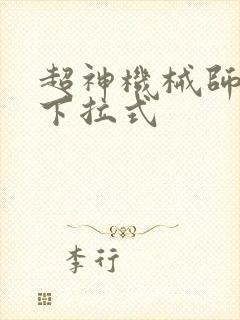 超神機械師
下拉式
李行